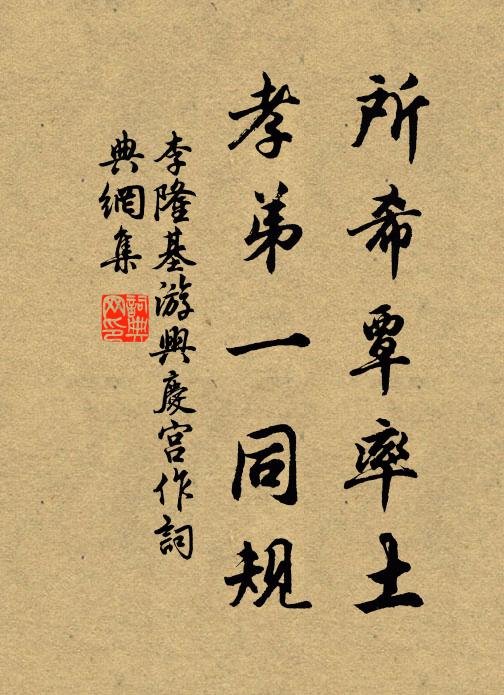 所希覃率土
孝弟一同規
李隆基游興慶宮作詞
典網集
詞典网印